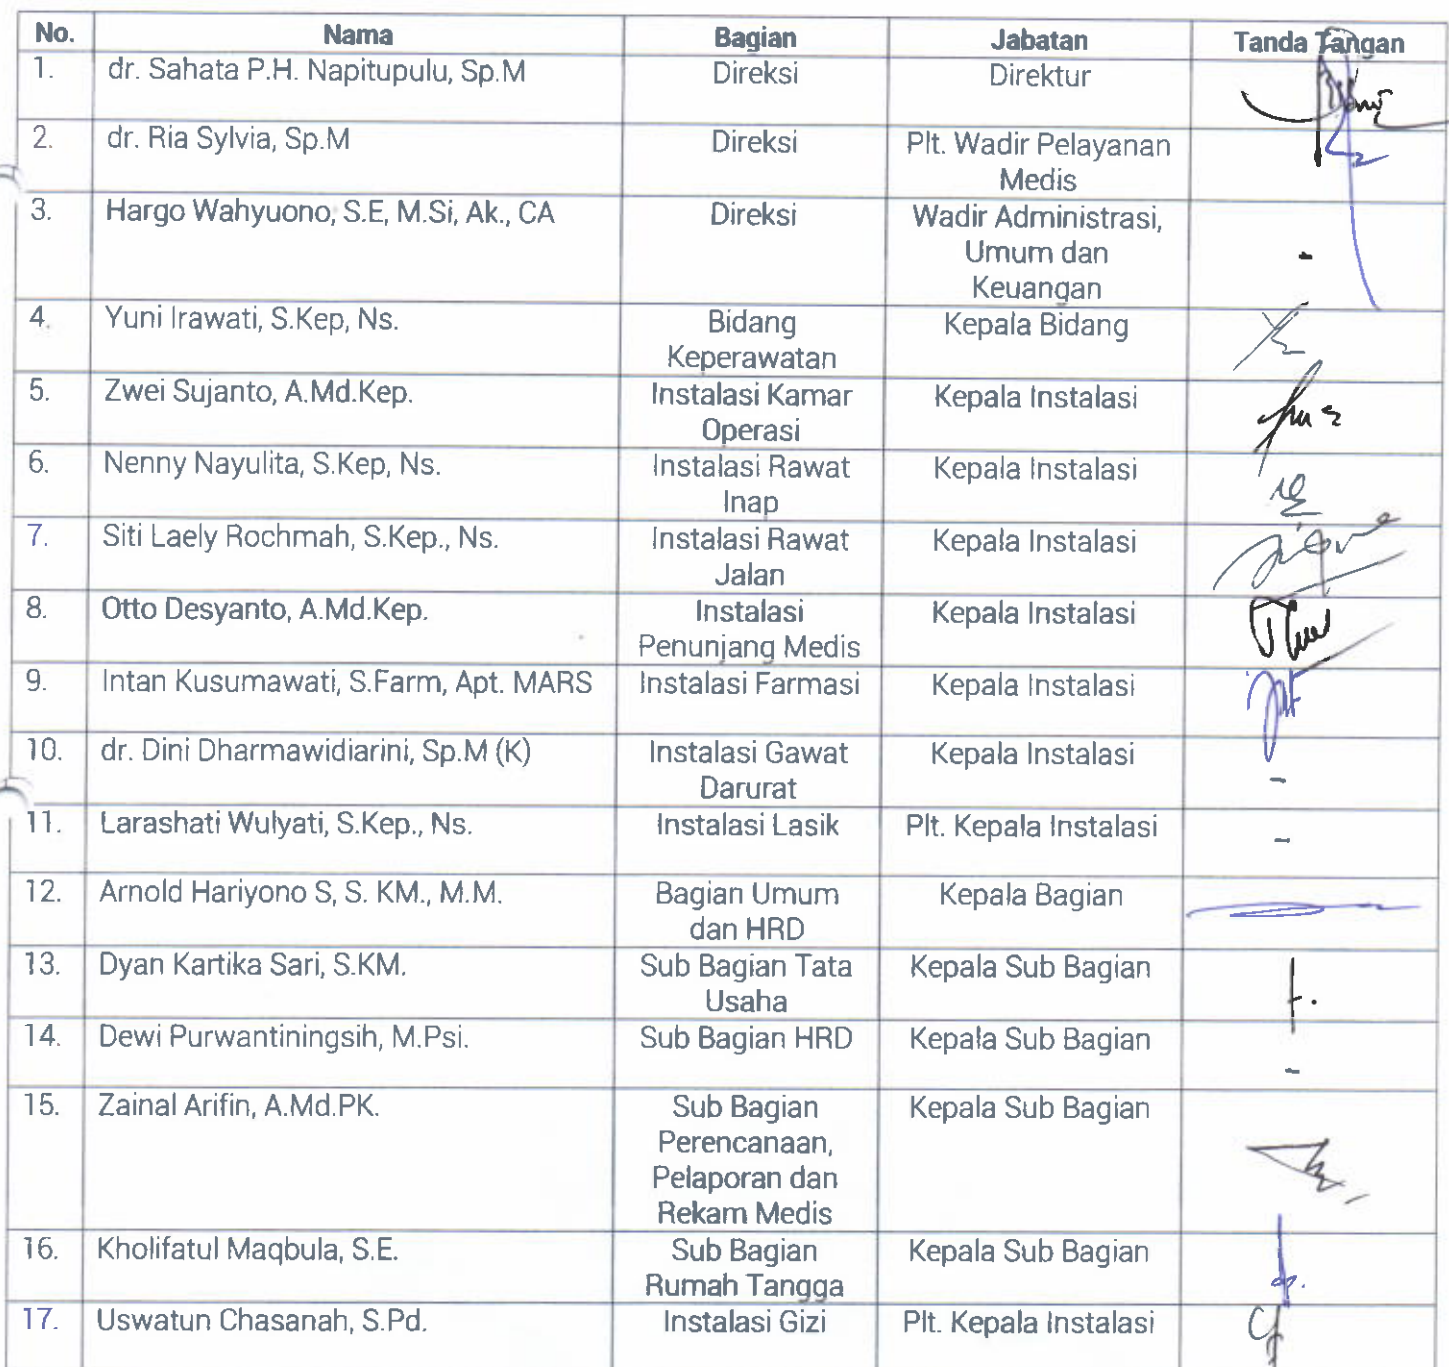 No. Nama Bagian Jabatan Tanda Tangan
1. dr. Sahata P.H. Napitupulu, Sp.M Direksi Direktur
2. dr. Ria Sylvia, Sp.M Direksi Plt. Wadir Pelayanan
Medis
3. Hargo Wahyuono, S.E, M.Si, Ak., CA Direksi Wadir Administrasi,
Umum dan
-
Keuangan
4. Yuni Irawati, S.Kep, Ns. Bidang Kepala Bidang
Keperawatan
5. Zwei Sujanto, A.Md.Kep. Instalasi Kamar Kepala Instalasi
Operasi
6. Nenny Nayulita, S.Kep, Ns. Instalasi Rawat Kepala Instalasi
Inap
7. Siti Laely Rochmah, S.Kep., Ns. Instalasi Rawat Kepala Instalasi
Jalan
8. Otto Desyanto, A.Md.Kep. Instalasi Kepala Instalasi
Penunjang Medis
9. Intan Kusumawati, S.Farm, Apt. MARS Instalasi Farmasi Kepala Instalasi
10. dr. Dini Dharmawidiarini, Sp.M (K) Instalasi Gawat Kepala Instalasi
Darurat -
11. Larashati Wulyati, S.Kep., Ns. Instalasi Lasik Plt. Kepala Instalasi -
12. Arnold Hariyono S, S. KM., M.M. Bagian Umum Kepala Bagian
dan HRD
13. Dyan Kartika Sari, S.KM. Sub Bagian Tata Kepala Sub Bagian
Usaha
14. Dewi Purwantiningsih, M.Psi. Sub Bagian HRD Kepala Sub Bagian -
15. Zainal Arifin, A.Md.PK. Sub Bagian Kepala Sub Bagian
Perencanaan,
Pelaporan dan
Rekam Medis
16. Kholifatul Maqbula, S.E. Sub Bagian Kepala Sub Bagian
Rumah Tangga
17. Uswatun Chasanah, S.Pd. Instalasi Gizi Plt. Kepala Instalasi